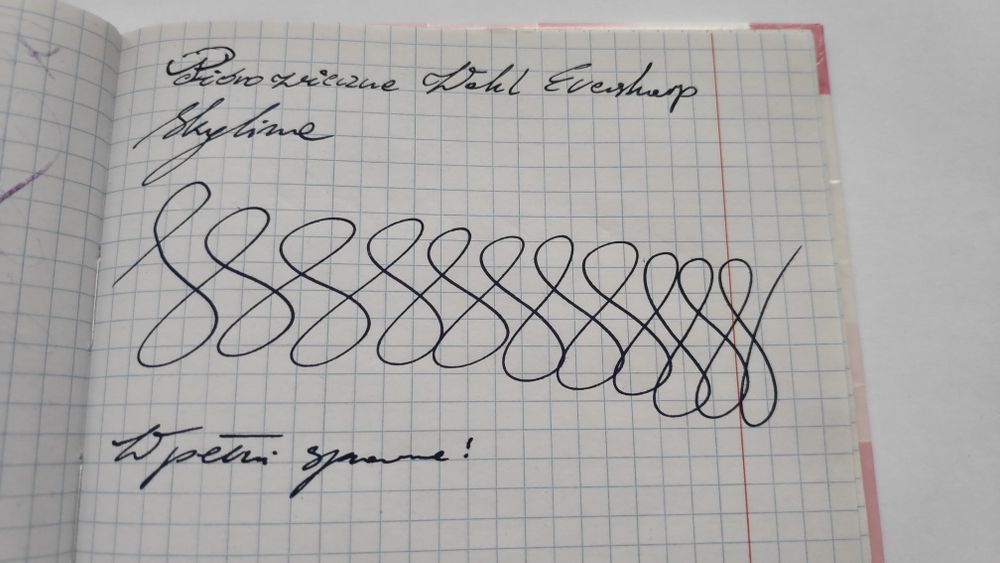 Pióro wieczne Wahl Eversharp
Skyline
W pełni sprawne!